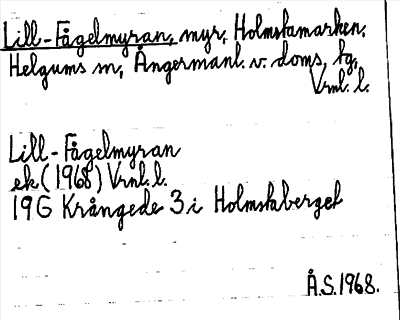 Lill-Fågelmyran, myr, Holmstamarken,
Helgums sn, Ångermanl. v. doms, fg,
Vrnl. l.
Lill-Fågelmyran
ek (1968) Vrnl. l.
19G Krångede 3 i Holmstaberget
Å.S. 1968.